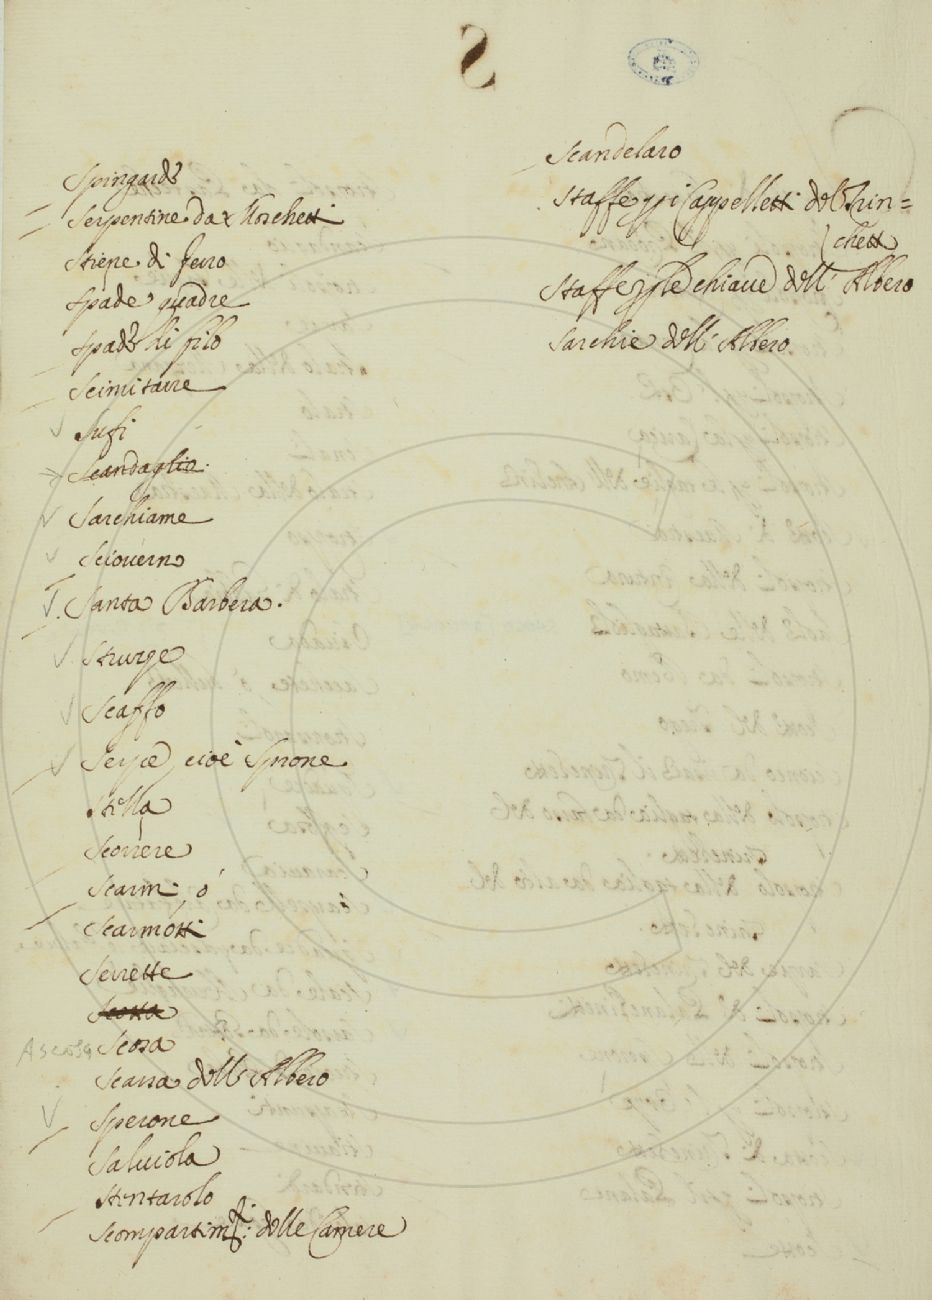 S
Spingarde
Serpentine da Moschetti
Stiepe di ferro
Spade quadre
Spade di filo
Scimitarre
Sufi
Scandaglio.
Sarchiame
Sciouerno
Santa Barbera.
Struge
Scaffo
Serpe cioè Sprone
Stella
Scorrere
Scarm: ó
Scarmótti
Serrette
Scosa
Ascosa
Scassa dell'Albero
Sperone
Saluiola
Stentarolo
Scompartimti: delle Camere
Scandelaro
Staffe pr i Cappelletti del Trin=
chetto
Staffe pr le chiaue dell'Albero
Sarchie dell'Albero